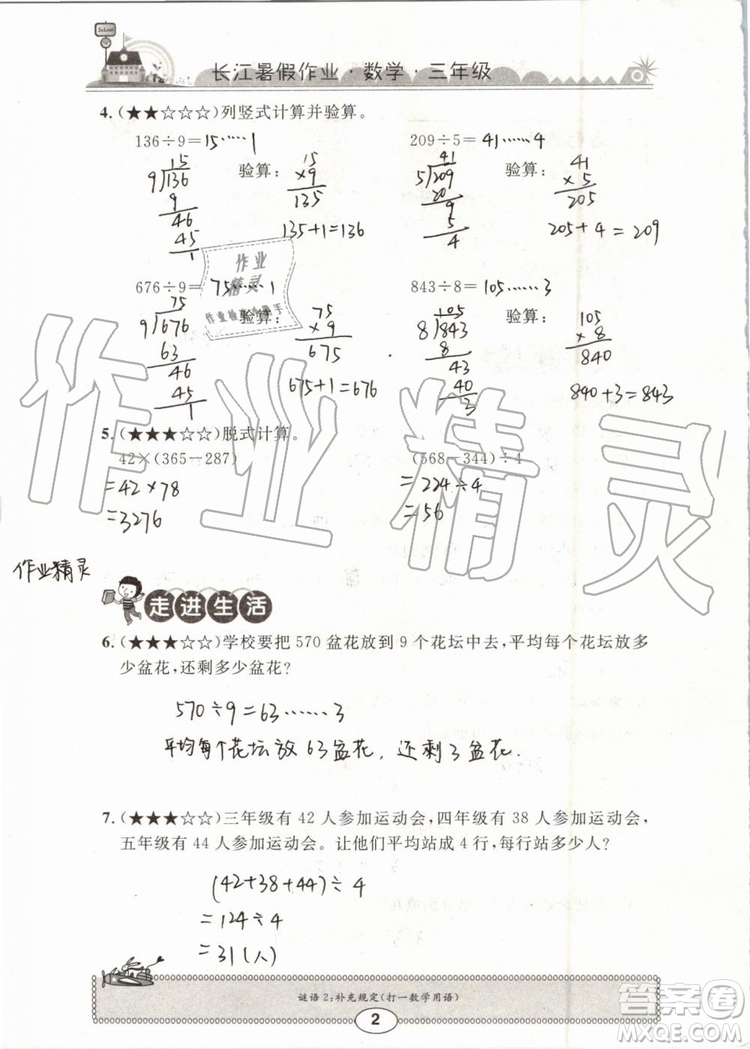 School
长江暑假作业·数学·三年级
4. (★★☆☆☆)列竖式计算并验算。
136÷9=15……1 209÷5=41……4
15 验算: 15 41 验算: 41
9)136 ×9 5)209 ×5
9 135 20 205
46 135+1=136 9 205+4=209
45 5
1 4
作业
精灵
676÷9=75……1 843÷8=105……3
75 验算: 75 105 验算: 105
9)676 ×9 8)843 ×8
63 675 8 840
46 676 43
45 675+1=676 40 840+3=843
1 3
5. (★★★☆☆)脱式计算。
42×(365-287) (568-344)÷4
=42×78 =224÷4
=3276 =56
作业精灵
作业精灵
走进生活
6. (★★★☆☆)学校要把 570 盆花放到 9 个花坛中去,平均每个花坛放多
少盆花,还剩多少盆花?
570÷9=63……3
平均每个花坛放63盆花,还剩3盆花.
7. (★★★☆☆)三年级有 42 人参加运动会,四年级有 38 人参加运动会,
五年级有 44 人参加运动会。让他们平均站成 4 行,每行站多少人?
(42+38+44)÷4
=124÷4
=31(人)
谜语2:补充规定(打一数学用语)
2
答案圈
MXQE.COM